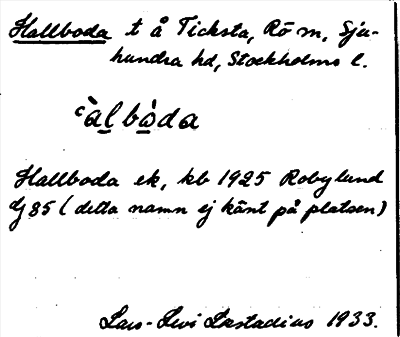 Hallboda t å Ticksta, Rö sn, Sju-
hundra hd, Stockholms l.
Hallboda ek, kb 1925 Robylund
85 (detta namn ej känt på platsen)
Lars-Levi Læstadius 1933.